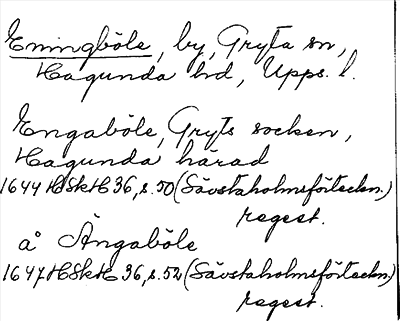 Eningböle, by, Gryta sn,
Hagunda hd, Upps. l.
Engaböle, Gryts socken,
Hagunda härad
1644 HSkH 36, s. 50 (Sävstaholmsförteckn.)
regest.
a° Ängaböle
1647 HSkH 36, s. 52 (Sävstaholmsförteckn.)
regest.